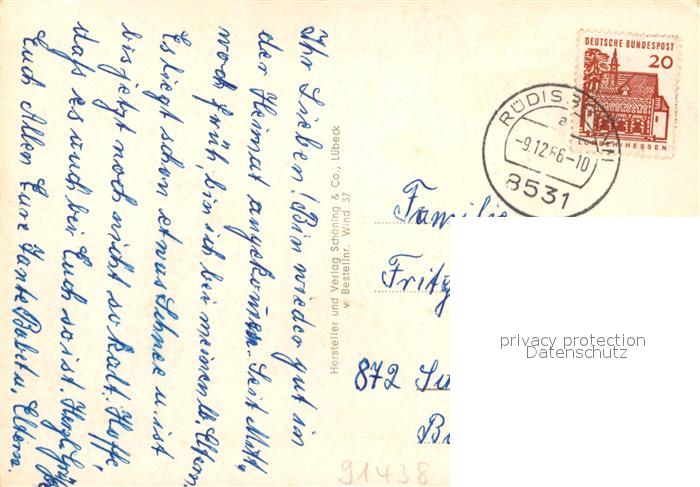 Ihr Lieben! Bin wieder gut in
der Heimat angekommen. Seit Mitt-
woch früh, bin ich bei meinen lb. Eltern.
Es liegt schon etwas Schnee u. ist
bis jetzt noch nicht so kalt. Hoffe,
daß es auch bei Euch so ist. Herzl. Grüße
Euch Allen Eure Tante Babeta, Eltern.
Hersteller und Verlag Schöning & Co., Lübeck
v Bestellnr. Wind 37
DEUTSCHE BUNDESPOST
20
LORSCH/HESSEN
RÜDIS
a
-9.12.66-10
8531
Familie
Fritz
872
91438
privacy protection
Datenschutz